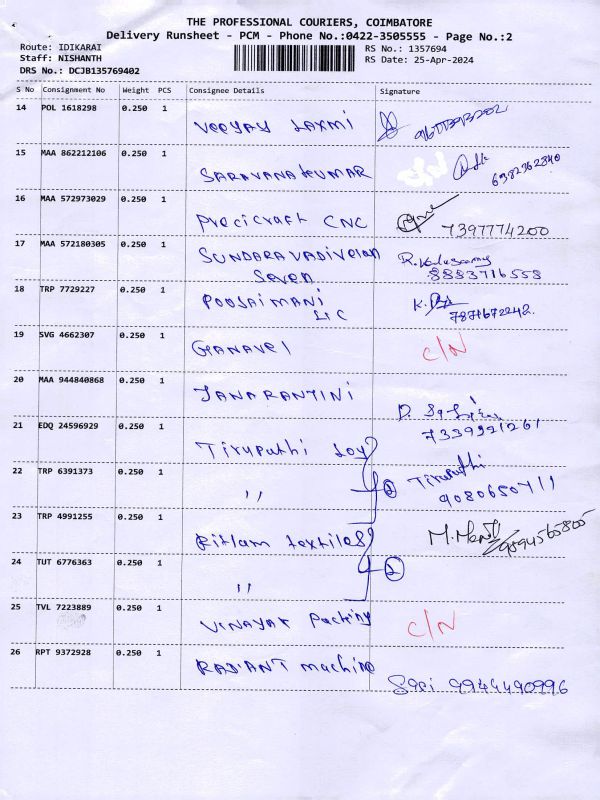 THE PROFESSIONAL COURIERS, COIMBATORE
Delivery Runsheet - PCM - Phone No.:0422-3505555 - Page No.:2
Route: IDIKARAI
RS No.: 1357694
Staff: NISHANTH
RS Date: 25-Apr-2024
DRS No.: DCJB135769402
S No Consignment No Weight PCS Consignee Details Signature
14 POL 1618298 0.250 1
VEEYAY LAXMI
15 MAA 862212106 0.250 1
SARAVANAKUMAR 6382362840
16 MAA 572973029 0.250 1
Precicraft CNC 7397774200
17 MAA 572180305 0.250 1
SUNDARAVADIVELAN
Seven 8883716558
18 TRP 7729227 0.250 1
POOSAIMANI K.
LIC 7871672242.
19 SVG 4662307 0.250 1
GANAVEL C/N
20 MAA 944840868 0.250 1
JANARANTINI
D.
21 EDQ 24596929 0.250 1
7339921261
Tirupathi
22 TRP 6391373 0.250 1
Tirupathi
" 2 9080650711
23 TRP 4991255 0.250 1
textiles 9894565805
24 TUT 6776363 0.250 1
" 2
25 TVL 7223889 0.250 1
VINAYAK Packing C/N
26 RPT 9372928 0.250 1
RADIANT machine
9944490996